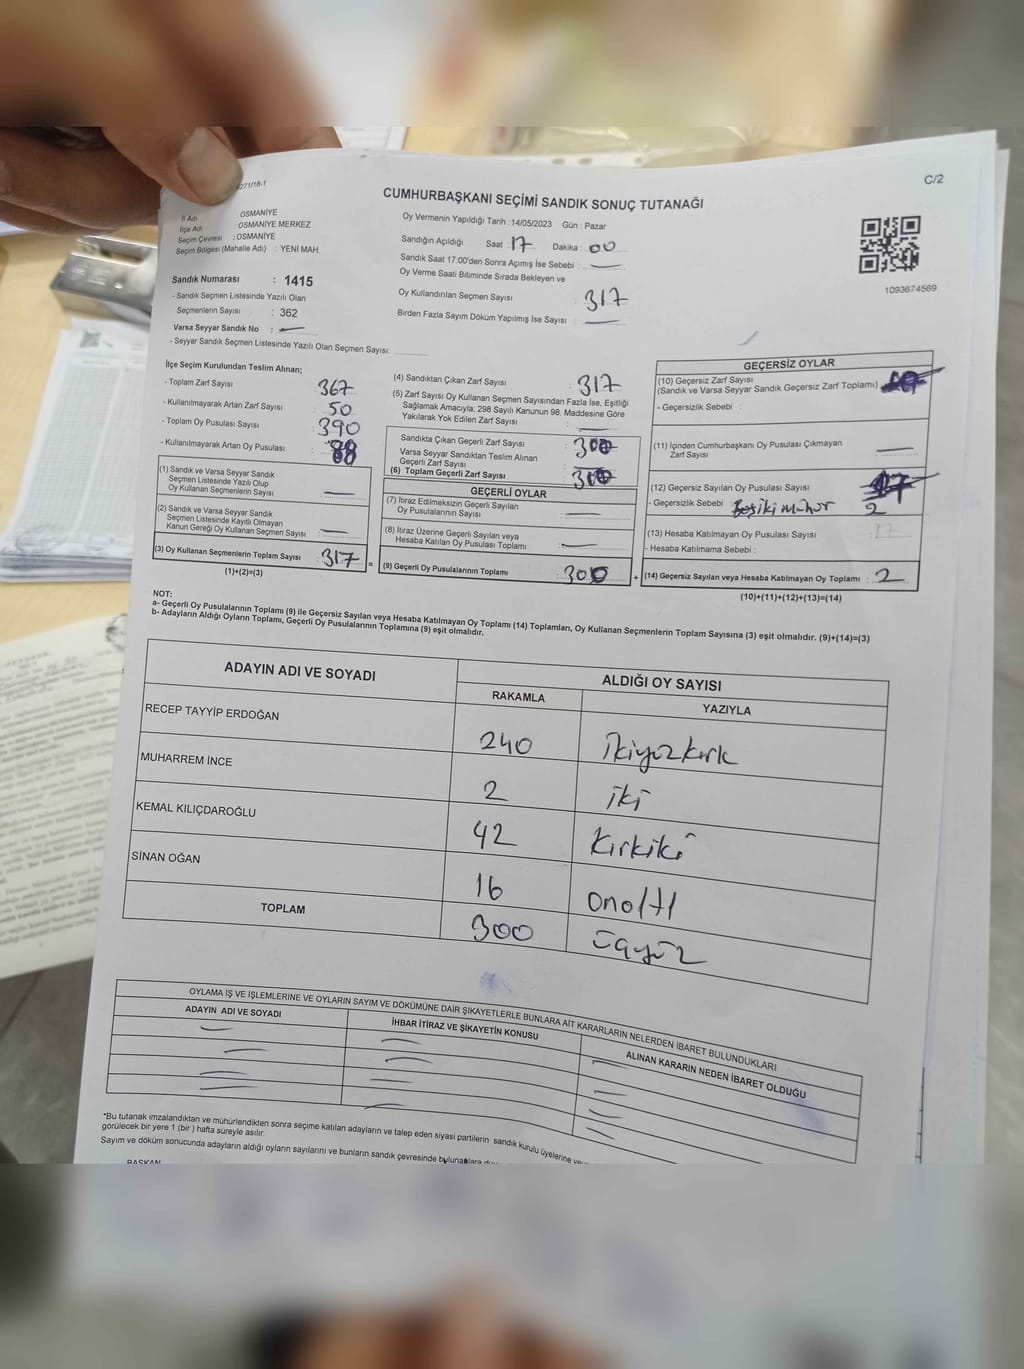 271/18-1
C/2
CUMHURBAŞKANI SEÇİMİ SANDIK SONUÇ TUTANAĞI
İl Adı OSMANİYE
İlçe Adı OSMANİYE MERKEZ
Seçim Çevresi : OSMANİYE
Seçim Bölgesi (Mahalle Adı) : YENİ MAH.
Oy Vermenin Yapıldığı Tarih :14/05/2023 Gün : Pazar
Sandığın Açıldığı Saat : 17 Dakika : 00
Sandık Saat 17:00'den Sonra Açımış İse Sebebi : —
Oy Verme Saati Bitiminde Sırada Bekleyen ve
Oy Kullandırılan Seçmen Sayısı : 317
Birden Fazla Sayım Döküm Yapılmış İse Sayısı : —
1093674569
Sandık Numarası : 1415
- Sandık Seçmen Listesinde Yazılı Olan
Seçmenlerin Sayısı : 362
Varsa Seyyar Sandık No : —
- Seyyar Sandık Seçmen Listesinde Yazılı Olan Seçmen Sayısı:
İlçe Seçim Kurulundan Teslim Alınan;
- Toplam Zarf Sayısı : 367
- Kullanılmayarak Artan Zarf Sayısı : 50
- Toplam Oy Pusulası Sayısı : 390
- Kullanılmayarak Artan Oy Pusulası : 88
(1) Sandık ve Varsa Seyyar Sandık
Seçmen Listesinde Yazılı Olup
Oy Kullanan Seçmenlerin Sayısı : —
(2) Sandık ve Varsa Seyyar Sandık
Seçmen Listesinde Kayıtlı Olmayan
Kanun Gereği Oy Kullanan Seçmen Sayısı : —
(3) Oy Kullanan Seçmenlerin Toplam Sayısı : 317
(1)+(2)=(3)
(4) Sandıktan Çıkan Zarf Sayısı : 317
(5) Zarf Sayısı Oy Kullanan Seçmen Sayısından Fazla İse, Eşitliği
Sağlamak Amacıyla, 298 Sayılı Kanunun 98. Maddesine Göre
Yakılarak Yok Edilen Zarf Sayısı : —
Sandıkta Çıkan Geçerli Zarf Sayısı : 300
Varsa Seyyar Sandıktan Teslim Alınan
Geçerli Zarf Sayısı
(6) Toplam Geçerli Zarf Sayısı : 300
GEÇERLİ OYLAR
(7) İtiraz Edilmeksizin Geçerli Sayılan
Oy Pusulalarının Sayısı : —
(8) İtiraz Üzerine Geçerli Sayılan veya
Hesaba Katılan Oy Pusulası Toplamı : —
= (9) Geçerli Oy Pusulalarının Toplamı : 300
GEÇERSİZ OYLAR
(10) Geçersiz Zarf Sayısı
(Sandık ve Varsa Seyyar Sandık Geçersiz Zarf Toplamı) :
- Geçersizlik Sebebi :
(11) İçinden Cumhurbaşkanı Oy Pusulası Çıkmayan
Zarf Sayısı : —
(12) Geçersiz Sayılan Oy Pusulası Sayısı : 17
- Geçersizlik Sebebi : Boş iki mühür 2
(13) Hesaba Katılmayan Oy Pusulası Sayısı : 17
- Hesaba Katılmama Sebebi :
+ (14) Geçersiz Sayılan veya Hesaba Katılmayan Oy Toplamı : 2
(10)+(11)+(12)+(13)=(14)
NOT:
a- Geçerli Oy Pusulalarının Toplamı (9) ile Geçersiz Sayılan veya Hesaba Katılmayan Oy Toplamı (14) Toplamları, Oy Kullanan Seçmenlerin Toplam Sayısına (3) eşit olmalıdır. (9)+(14)=(3)
b- Adayların Aldığı Oyların Toplamı, Geçerli Oy Pusulalarının Toplamına (9) eşit olmalıdır.
ADAYIN ADI VE SOYADI ALDIĞI OY SAYISI
RAKAMLA YAZIYLA
RECEP TAYYİP ERDOĞAN 240 ikiyüzkırk
MUHARREM İNCE 2 iki
KEMAL KILIÇDAROĞLU 42 kırkiki
SİNAN OĞAN 16 onaltı
TOPLAM 300 üçyüz
OYLAMA İŞ VE İŞLEMLERİNE VE OYLARIN SAYIM VE DÖKÜMÜNE DAİR ŞİKAYETLERLE BUNLARA AİT KARARLARIN NELERDEN İBARET BULUNDUKLARI
ADAYIN ADI VE SOYADI İHBAR İTİRAZ VE ŞİKAYETİN KONUSU ALINAN KARARIN NEDEN İBARET OLDUĞU
*Bu tutanak imzalandıktan ve mühürlendikten sonra seçime katılan adayların ve talep eden siyasi partilerin sandık kurulu üyelerine
görülecek bir yere 1 (bir) hafta süreyle asılır.
Sayım ve döküm sonucunda adayların aldığı oyların sayılarını ve bunların sandık çevresinde
BAŞKAN